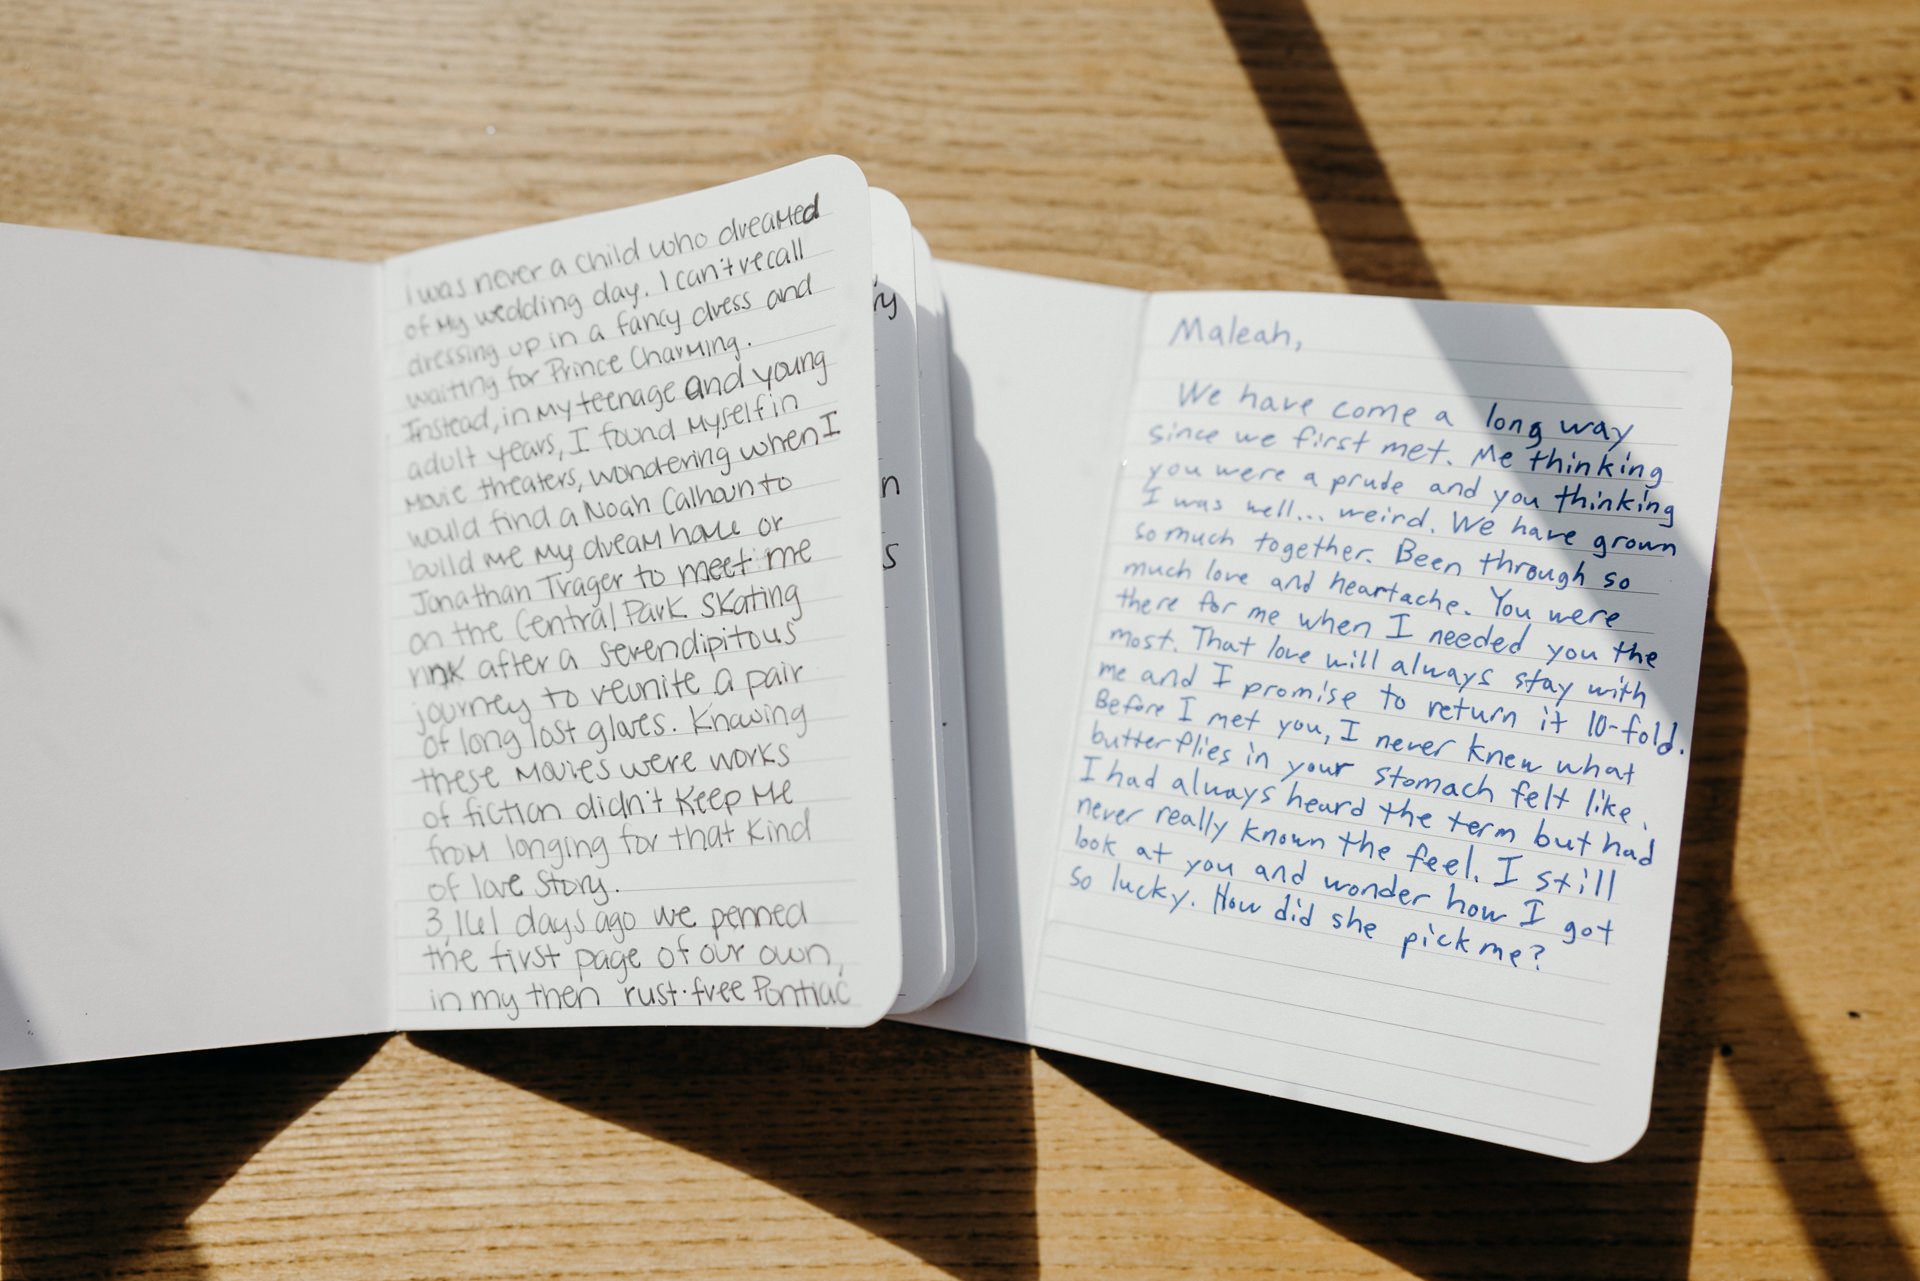 I was never a child who dreamed
of my wedding day. I can't recall
dressing up in a fancy dress and
waiting for Prince Charming.
Instead, in my teenage and young
adult years, I found myself in
movie theaters, wondering when I
would find a Noah Calhoun to
build me my dream home or
Jonathan Trager to meet me
on the Central Park skating
rink after a serendipitous
journey to reunite a pair
of long lost gloves. Knowing
these movies were works
of fiction didn't keep me
from longing for that kind
of love story.
3,161 days ago we penned
the first page of our own,
in my then rust-free Pontiac
ry
n
s
Maleah,
We have come a long way
since we first met. Me thinking
you were a prude and you thinking
I was well... weird. We have grown
so much together. Been through so
much love and heartache. You were
there for me when I needed you the
most. That love will always stay with
me and I promise to return it 10-fold.
Before I met you, I never knew what
butterflies in your stomach felt like.
I had always heard the term but had
never really known the feel. I still
look at you and wonder how I got
so lucky. How did she pick me?